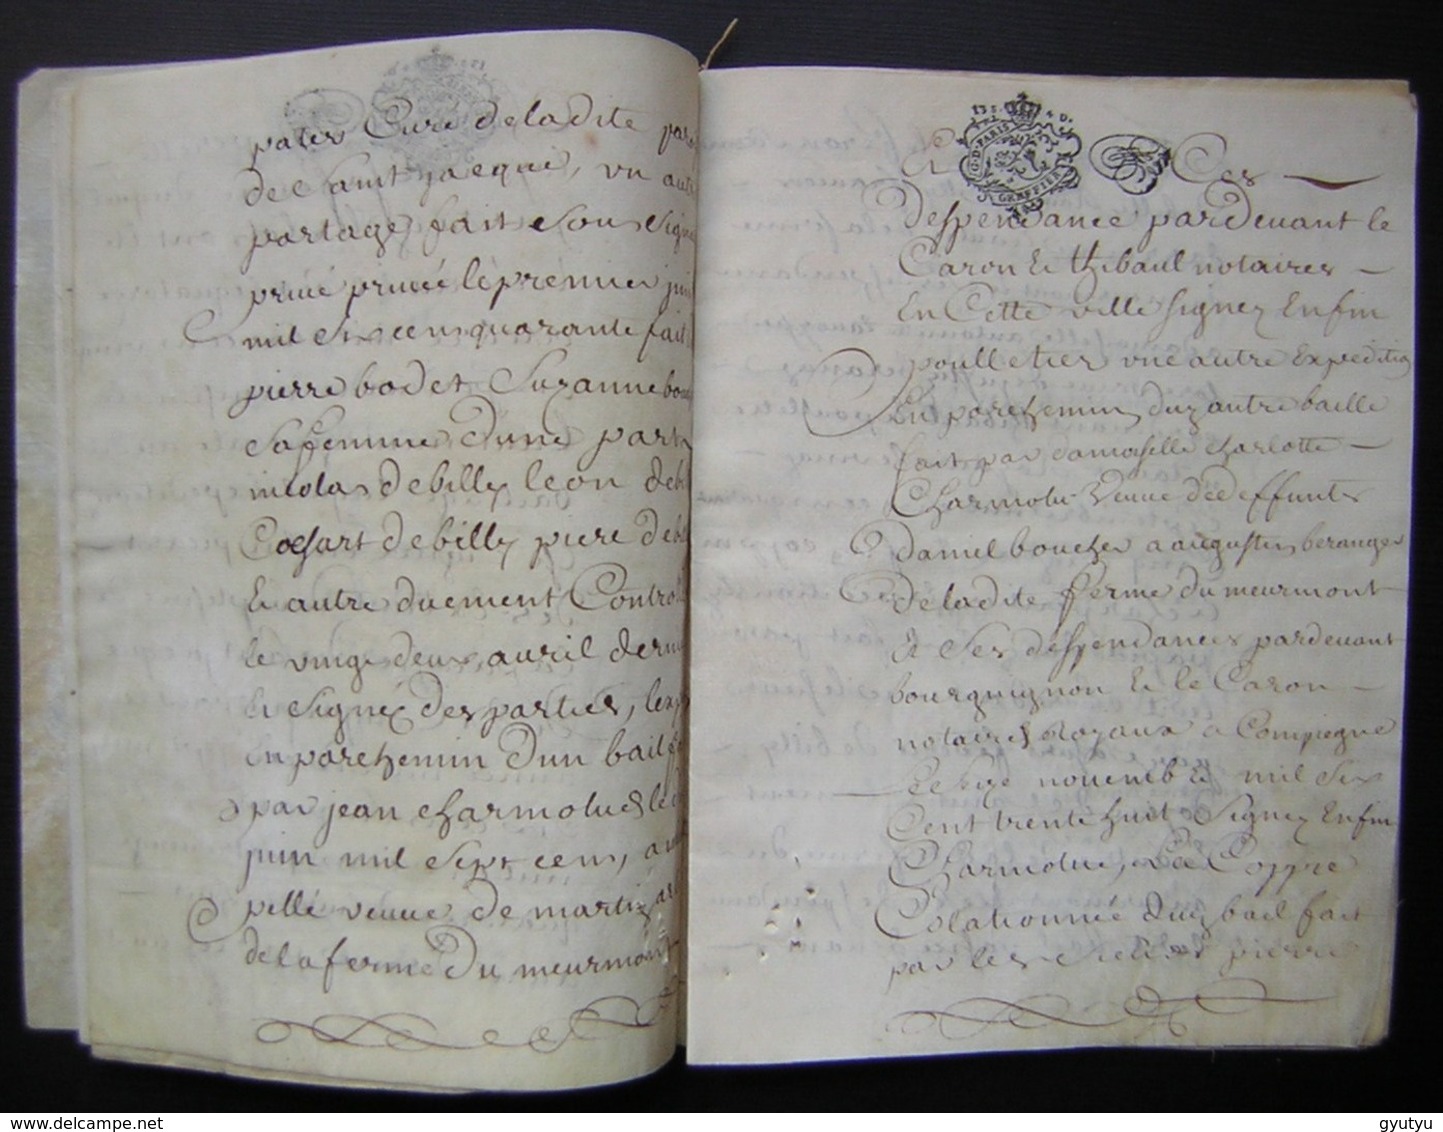 pater Curé de la dite paro
de Saint jacque, un autre
partage fait sous signe
privé privée le premier jui
mil six cens quarante fait
pierre bodet Suzanne bou
sa femme d'une part
nicolas de billy leon de bi
Coesart de billy piere de bi
et autre duement Controll
le vingt deux avril dern
et signé des parties, l'exp
En parchemin d'un bail f
par jean charmolue le
juin mil sept cens, a
pellé veuve de martin
de la ferme du meurmont
135 4 D.
G. D. PARIS
GREFFIER
Et Ces
despendance pardevant le
Caron et thibaul notaires
En Cette ville signez Enfin
poulletier une autre Expedition
En parchemin duz autre baille
fait par damoiselle charlotte
Charmolue veuve de deffunts
daniel boucher a augustin beranger
de la dite ferme du meurmont
et ses despendances pardevant
bourguignon et le Caron
notaires Royaux a Compiegne
Le six novembre mil six
Cent trente huit signez Enfin
Charmolue, Coppie
Colationnée duz bail fait
par les pierre
www.delcampe.net
gyutyu